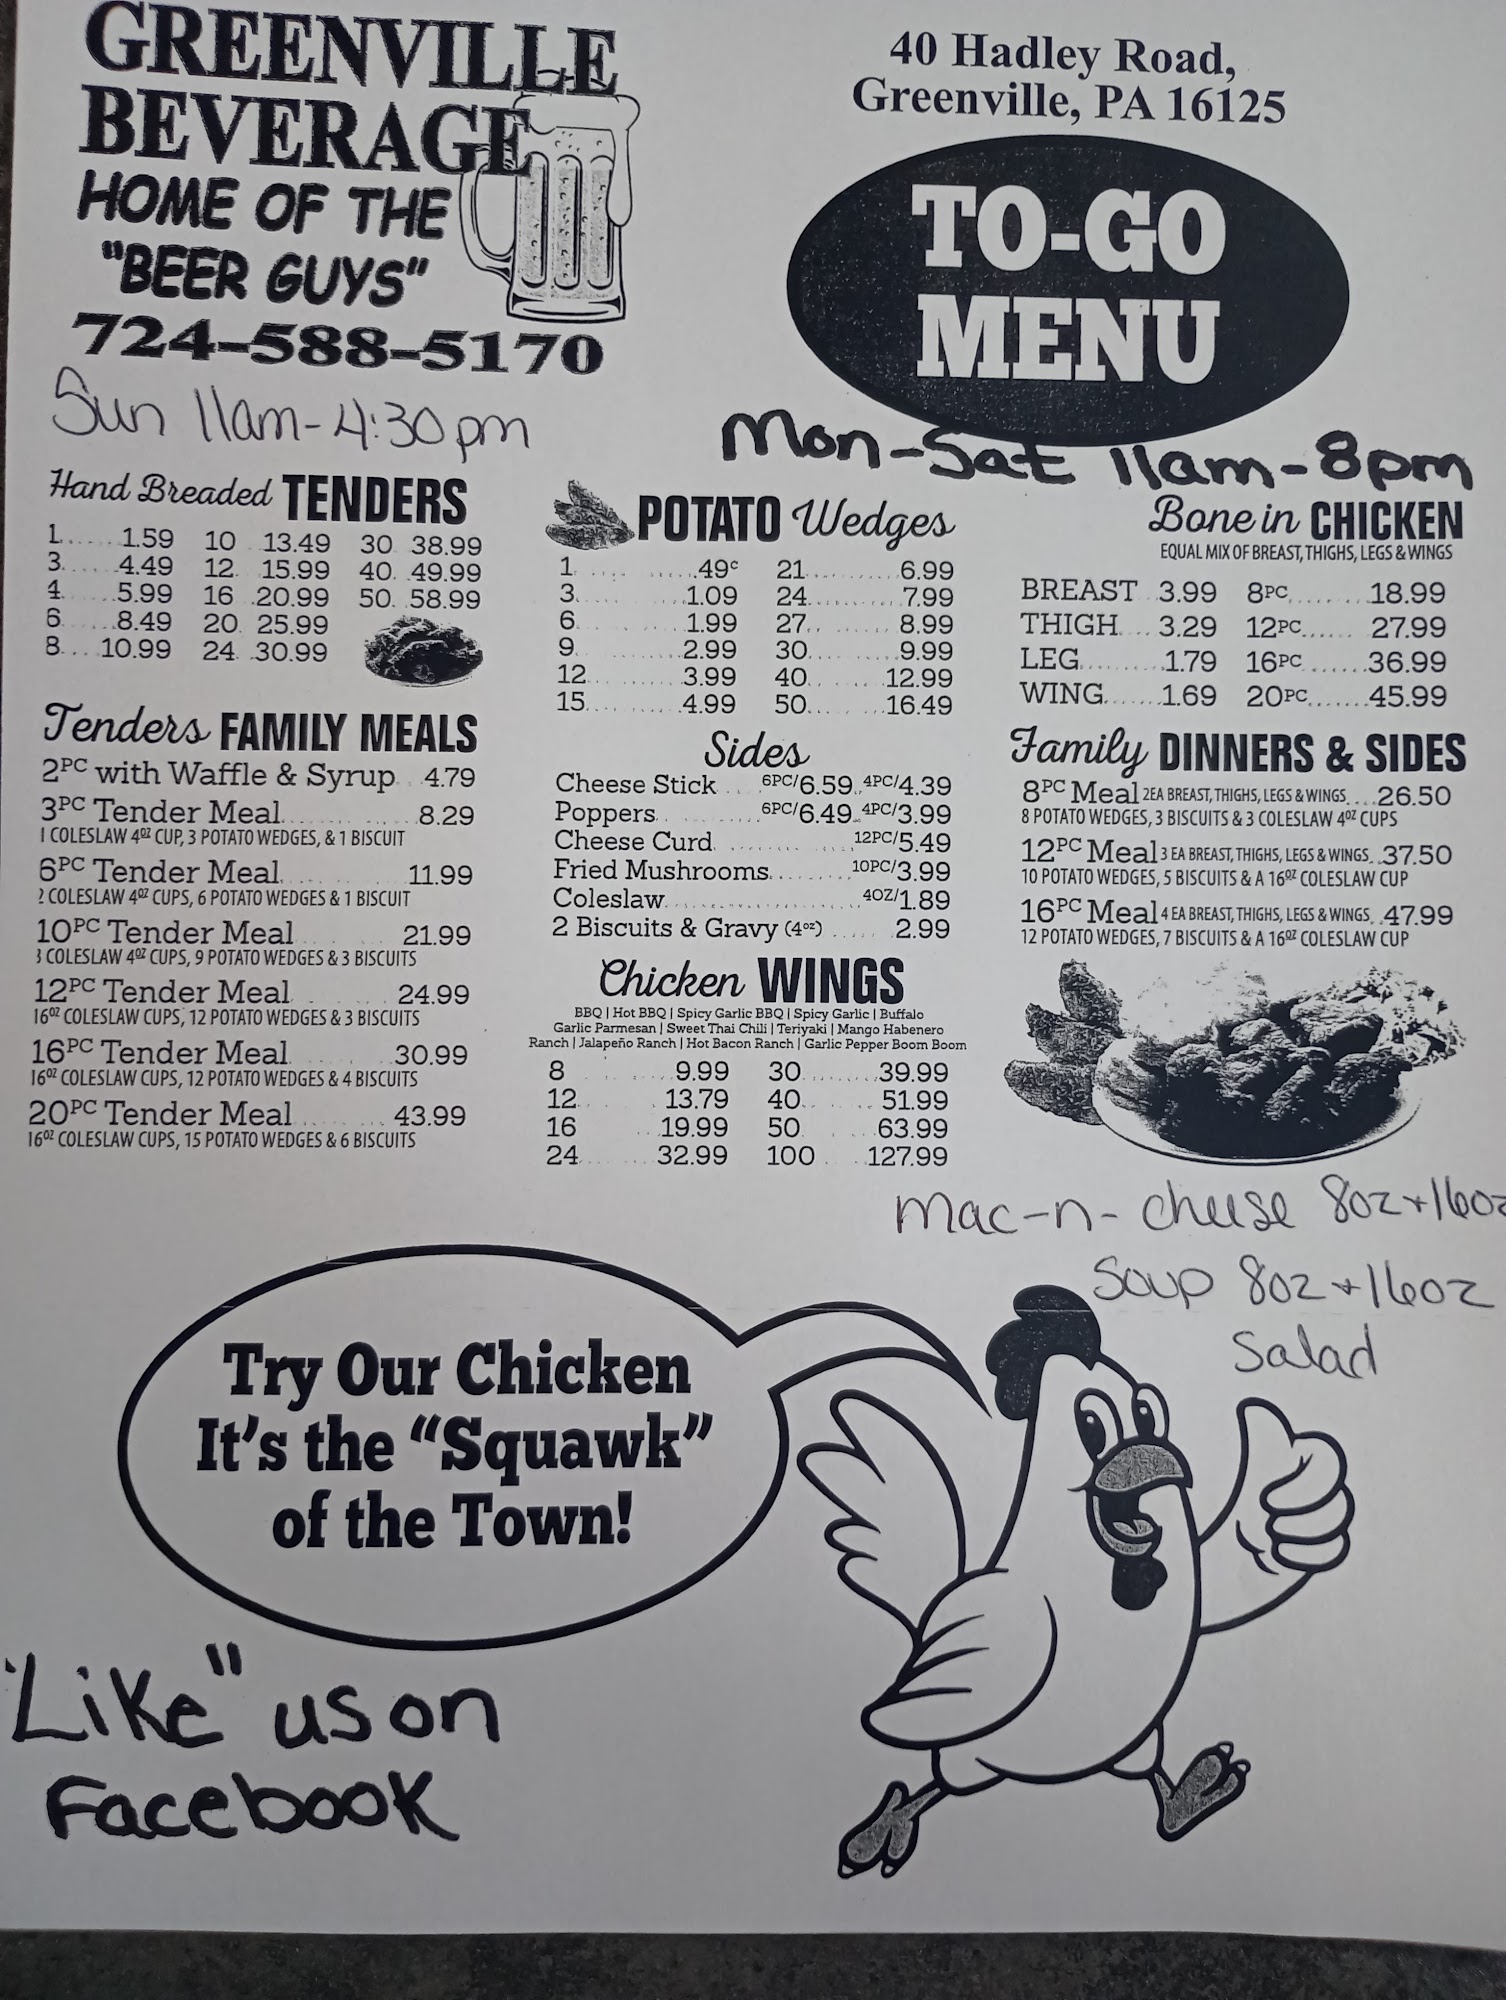 GREENVILLE
BEVERAGE
HOME OF THE
"BEER GUYS"
724-588-5170
40 Hadley Road,
Greenville, PA 16125
TO-GO
MENU
Sun 11am-4:30pm
Mon-Sat 11am-8pm
Hand Breaded TENDERS
1......1.59 10 13.49 30 38.99
3......4.49 12. 15.99 40. 49.99
4......5.99 16 20.99 50. 58.99
6......8.49 20 25.99
8.... 10.99 24 30.99
Tenders FAMILY MEALS
2PC with Waffle & Syrup 4.79
3PC Tender Meal 8.29
1 COLESLAW 4OZ CUP, 3 POTATO WEDGES, & 1 BISCUIT
6PC Tender Meal 11.99
2 COLESLAW 4OZ CUPS, 6 POTATO WEDGES & 1 BISCUIT
10PC Tender Meal 21.99
3 COLESLAW 4OZ CUPS, 9 POTATO WEDGES & 3 BISCUITS
12PC Tender Meal 24.99
16OZ COLESLAW CUPS, 12 POTATO WEDGES & 3 BISCUITS
16PC Tender Meal 30.99
16OZ COLESLAW CUPS, 12 POTATO WEDGES & 4 BISCUITS
20PC Tender Meal 43.99
16OZ COLESLAW CUPS, 15 POTATO WEDGES & 6 BISCUITS
POTATO Wedges
1 .49¢ 21 6.99
3 1.09 24 7.99
6 1.99 27 8.99
9 2.99 30 9.99
12 3.99 40 12.99
15 4.99 50 16.49
Sides
Cheese Stick 6PC/6.59 4PC/4.39
Poppers 6PC/6.49 4PC/3.99
Cheese Curd 12PC/5.49
Fried Mushrooms 10PC/3.99
Coleslaw 4OZ/1.89
2 Biscuits & Gravy (4oz) 2.99
Chicken WINGS
BBQ | Hot BBQ | Spicy Garlic BBQ | Spicy Garlic | Buffalo
Garlic Parmesan | Sweet Thai Chili | Teriyaki | Mango Habenero
Ranch | Jalapeño Ranch | Hot Bacon Ranch | Garlic Pepper Boom Boom
8 9.99 30 39.99
12 13.79 40 51.99
16 19.99 50 63.99
24 32.99 100 127.99
Bone in CHICKEN
EQUAL MIX OF BREAST, THIGHS, LEGS & WINGS
BREAST 3.99 8PC 18.99
THIGH 3.29 12PC 27.99
LEG 1.79 16PC 36.99
WING 1.69 20PC 45.99
Family DINNERS & SIDES
8PC Meal 2EA BREAST, THIGHS, LEGS & WINGS 26.50
8 POTATO WEDGES, 3 BISCUITS & 3 COLESLAW 4OZ CUPS
12PC Meal 3 EA BREAST, THIGHS, LEGS & WINGS 37.50
10 POTATO WEDGES, 5 BISCUITS & A 16OZ COLESLAW CUP
16PC Meal 4 EA BREAST, THIGHS, LEGS & WINGS 47.99
12 POTATO WEDGES, 7 BISCUITS & A 16OZ COLESLAW CUP
mac-n-cheese 8oz+16oz
Soup 8oz+16oz
Salad
Try Our Chicken
It's the "Squawk"
of the Town!
"Like" us on
Facebook